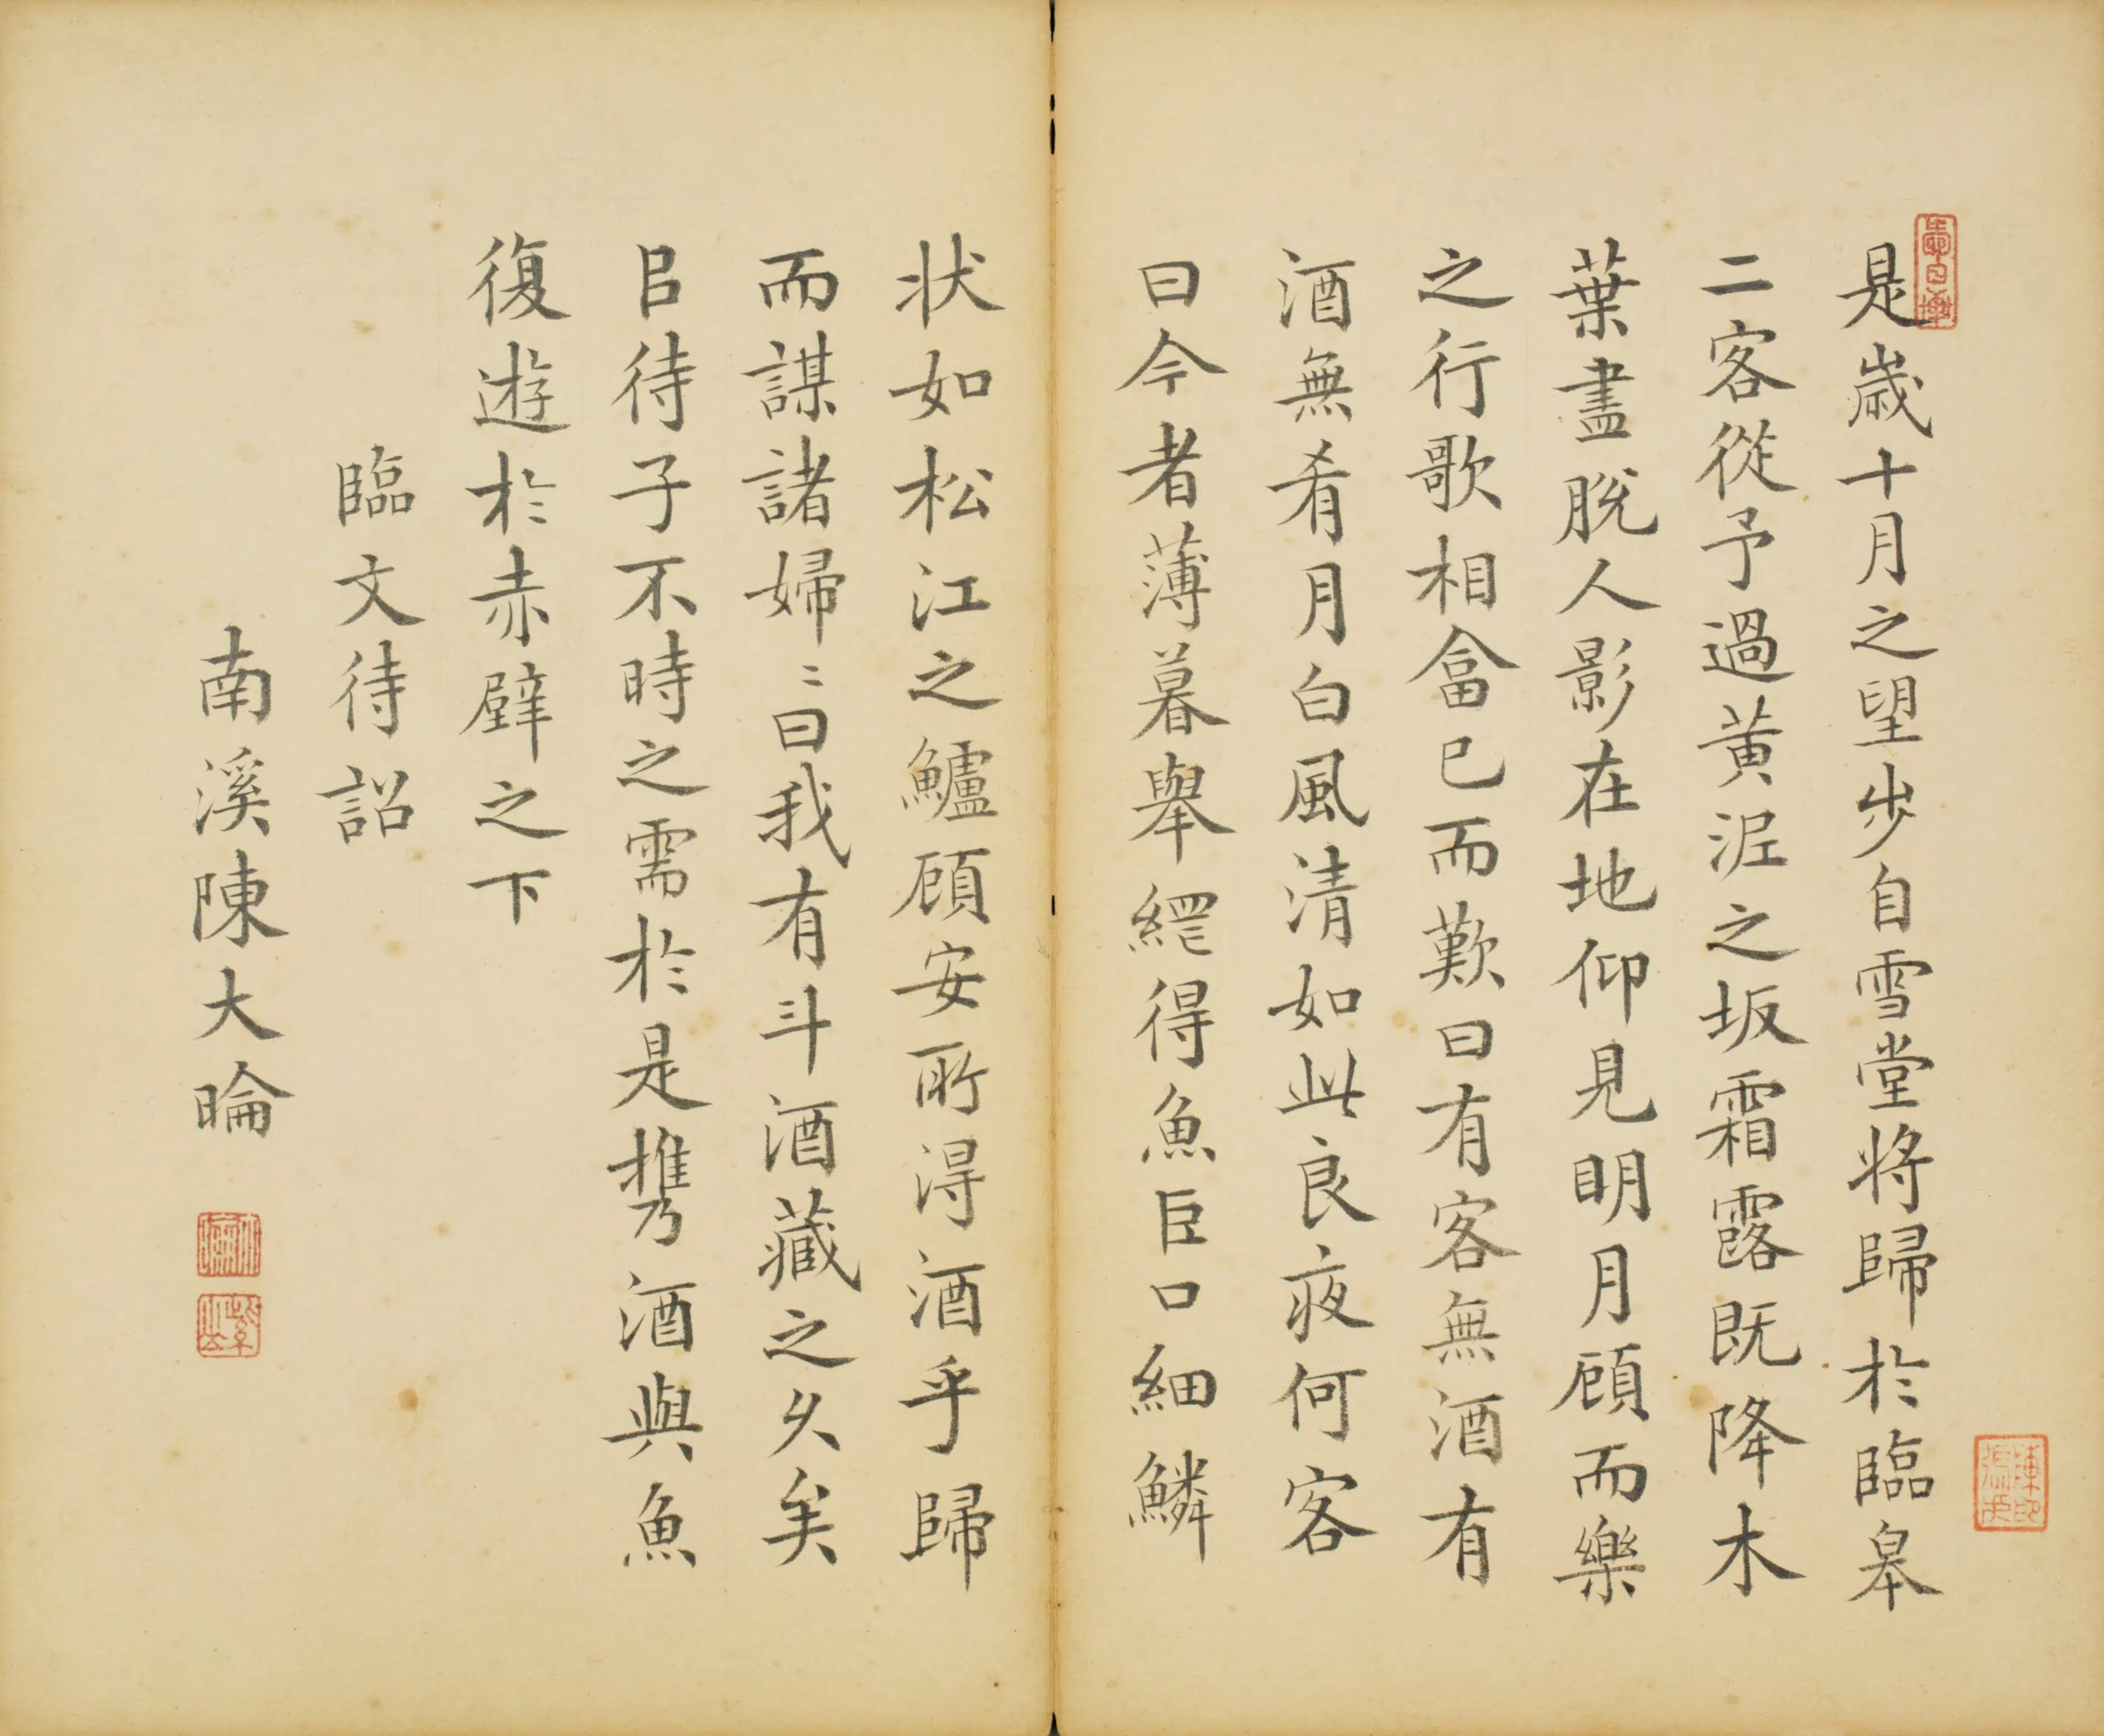 是歲十月之望步自雪堂將歸於臨皋
二客從予過黃泥之坂霜露既降木
葉盡脫人影在地仰見明月顧而樂
之行歌相畣已而歎曰有客無酒有
酒無肴月白風清如此良夜何客
曰今者薄暮舉網得魚巨口細鱗
狀如松江之鱸顧安所得酒乎歸
而謀諸婦〻曰我有斗酒藏之久矣
㠯待子不時之需於是攜酒與魚
復遊於赤壁之下
臨文待詔
南溪陳大䁚